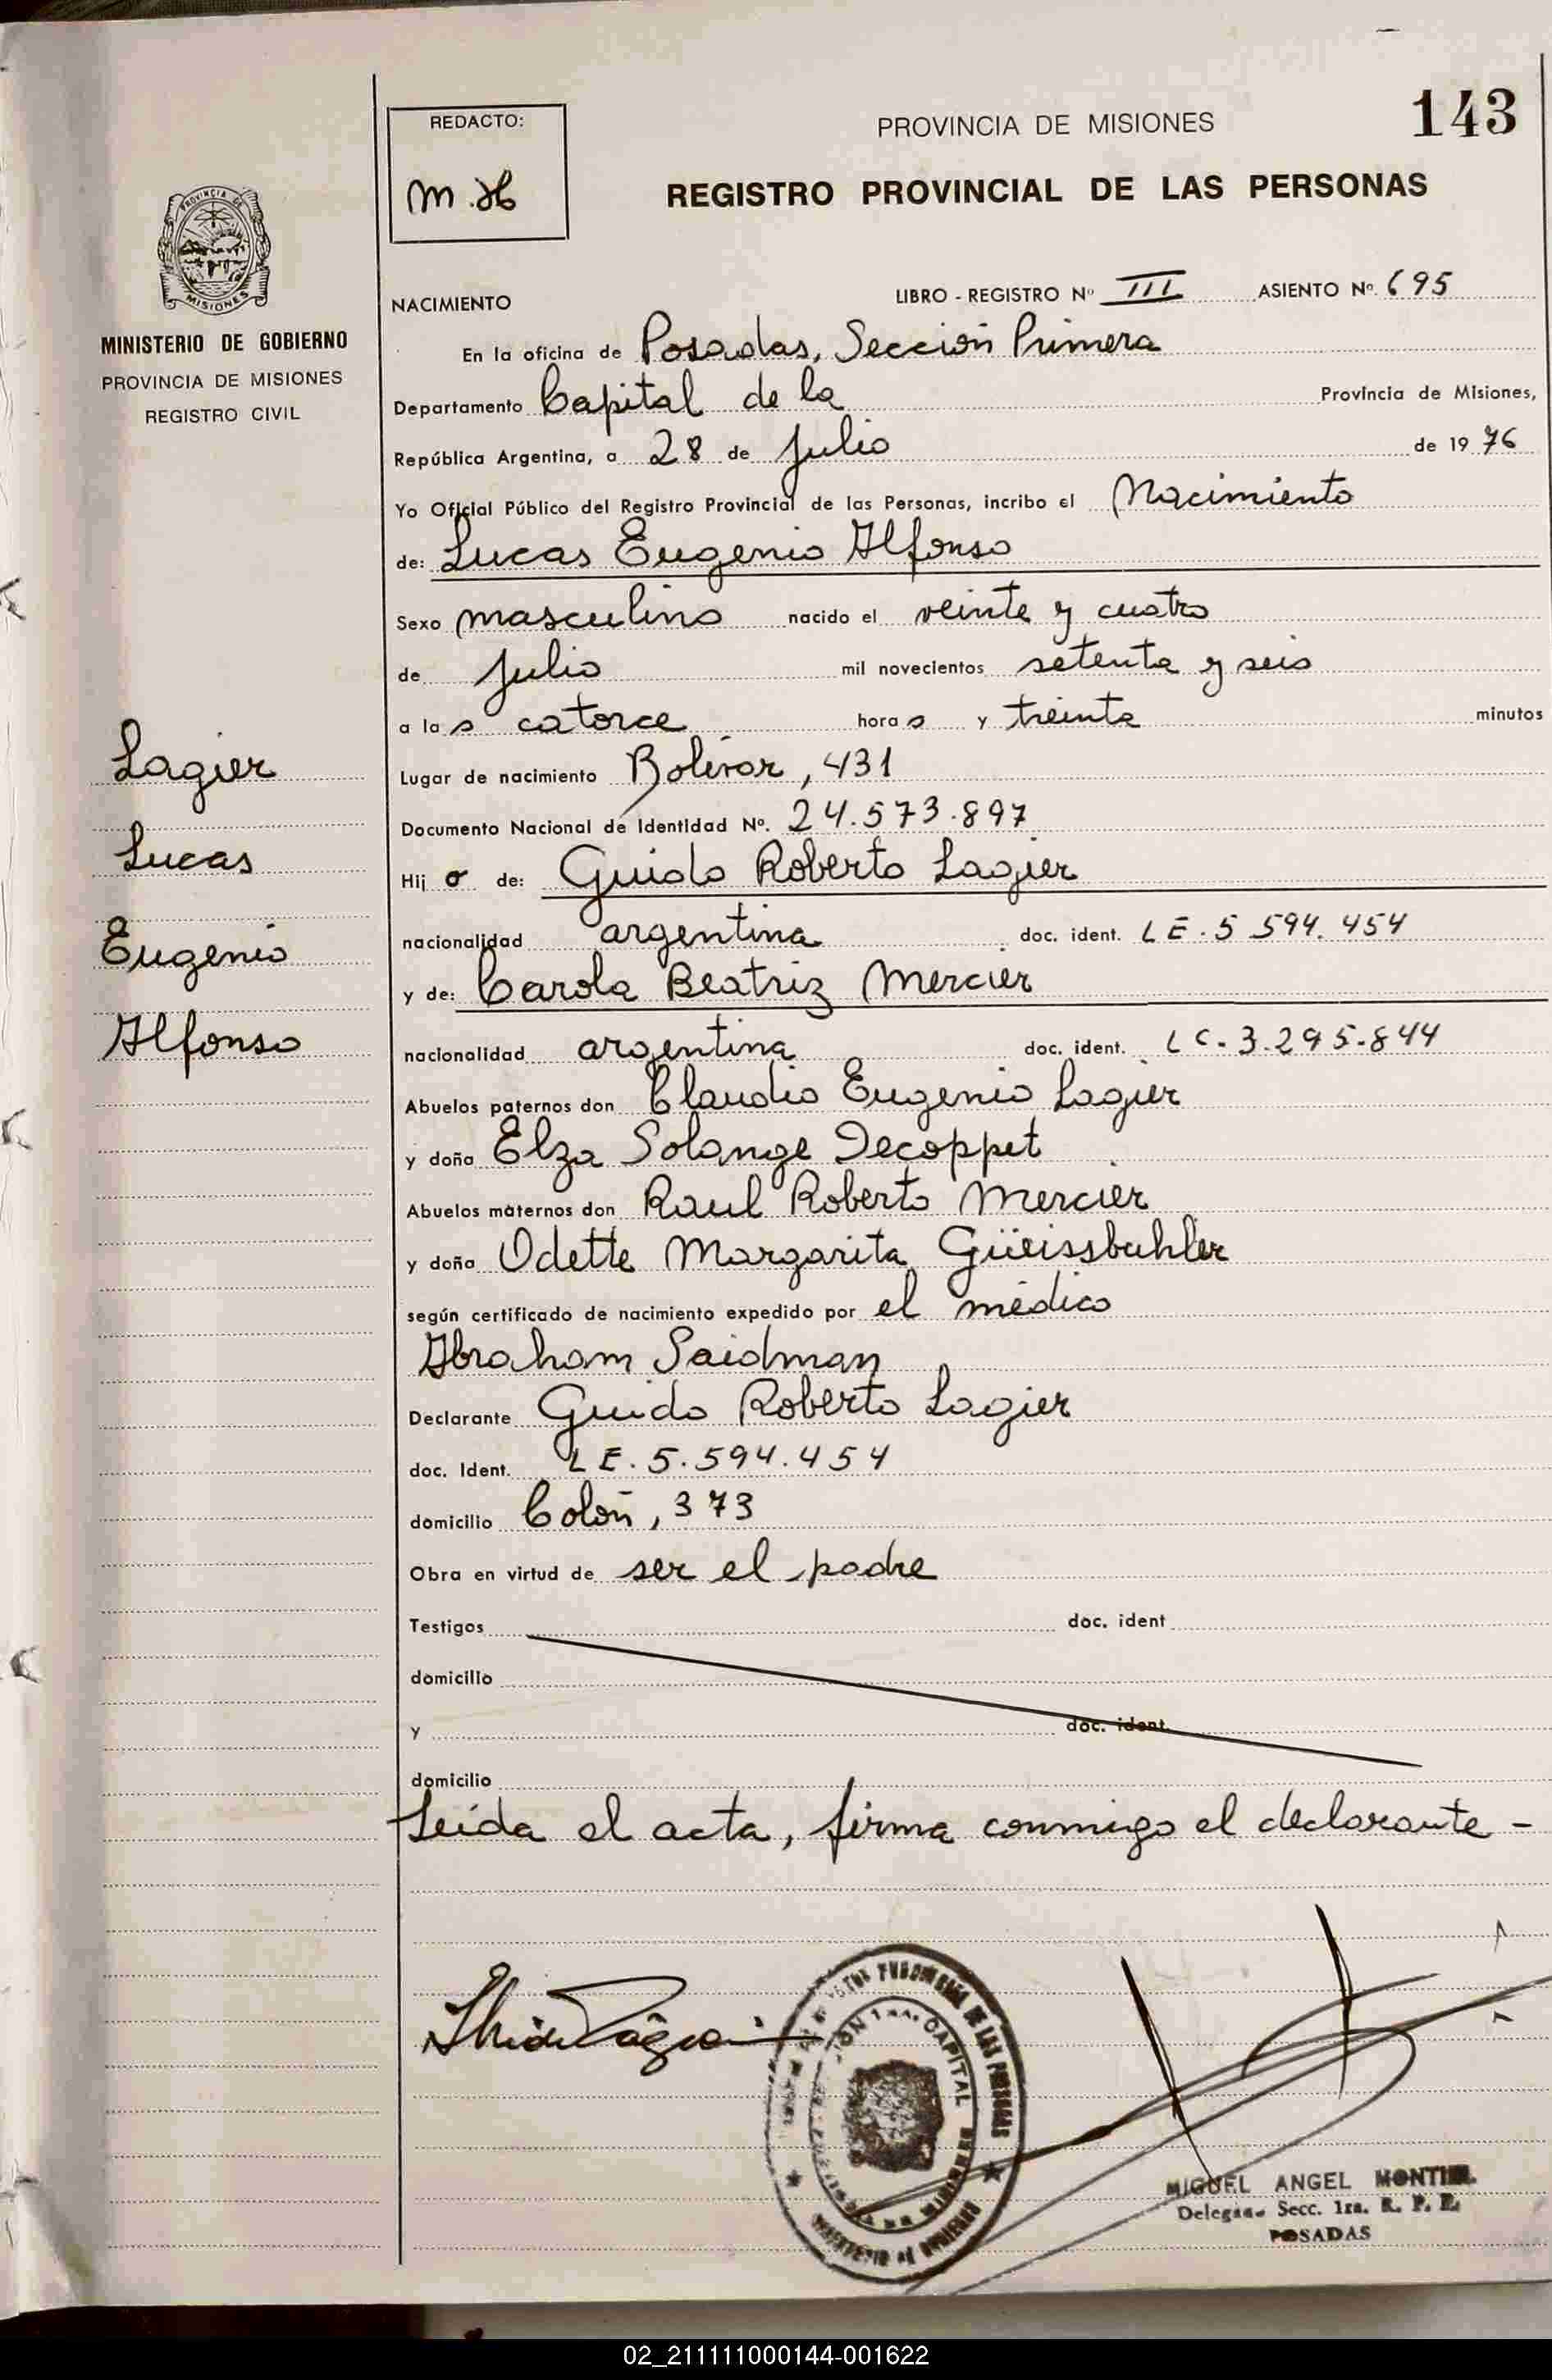 143
REDACTO:
PROVINCIA DE MISIONES
m.H
REGISTRO PROVINCIAL DE LAS PERSONAS
PROVINCIA DE
MISIONES
MINISTERIO DE GOBIERNO
PROVINCIA DE MISIONES
REGISTRO CIVIL
NACIMIENTO
LIBRO - REGISTRO Nº III ASIENTO Nº. 695
En la oficina de Posadas, Sección Primera
Departamento Capital de la Provincia de Misiones,
República Argentina, a 28 de Julio de 1976
Yo Oficial Público del Registro Provincial de las Personas, incribo el Nacimiento
de: Lucas Eugenio Alfonso
Sexo masculino nacido el veinte y cuatro
de Julio mil novecientos setenta y seis
a las catorce horas y treinta minutos
Lugar de nacimiento Bolívar, 431
Documento Nacional de Identidad Nº. 24.573.897
Hijo de: Guido Roberto Lagier
nacionalidad argentina doc. ident. LE. 5 594. 454
y de: Carola Beatriz Mercier
nacionalidad argentina doc. ident. LC. 3.295.844
Abuelos paternos don Claudio Eugenio Lagier
y doña Elza Solange Decoppet
Abuelos maternos don Raul Roberto Mercier
y doña Odette Margarita Güeissbuhler
según certificado de nacimiento expedido por el médico
Abraham Saidman
Declarante Guido Roberto Lagier
doc. Ident. LE. 5.594.454
domicilio Colón, 373
Obra en virtud de ser el padre
Testigos doc. ident
domicilio
y doc. ident
domicilio
Leída el acta, firma conmigo el declarante -
Lagier
Lucas
Eugenio
Alfonso
DE LAS PERSONAS
CAPITAL
MIGUEL ANGEL MONTIEL
Secc. 1ra. R. P. P.
POSADAS
02_211111000144-001622